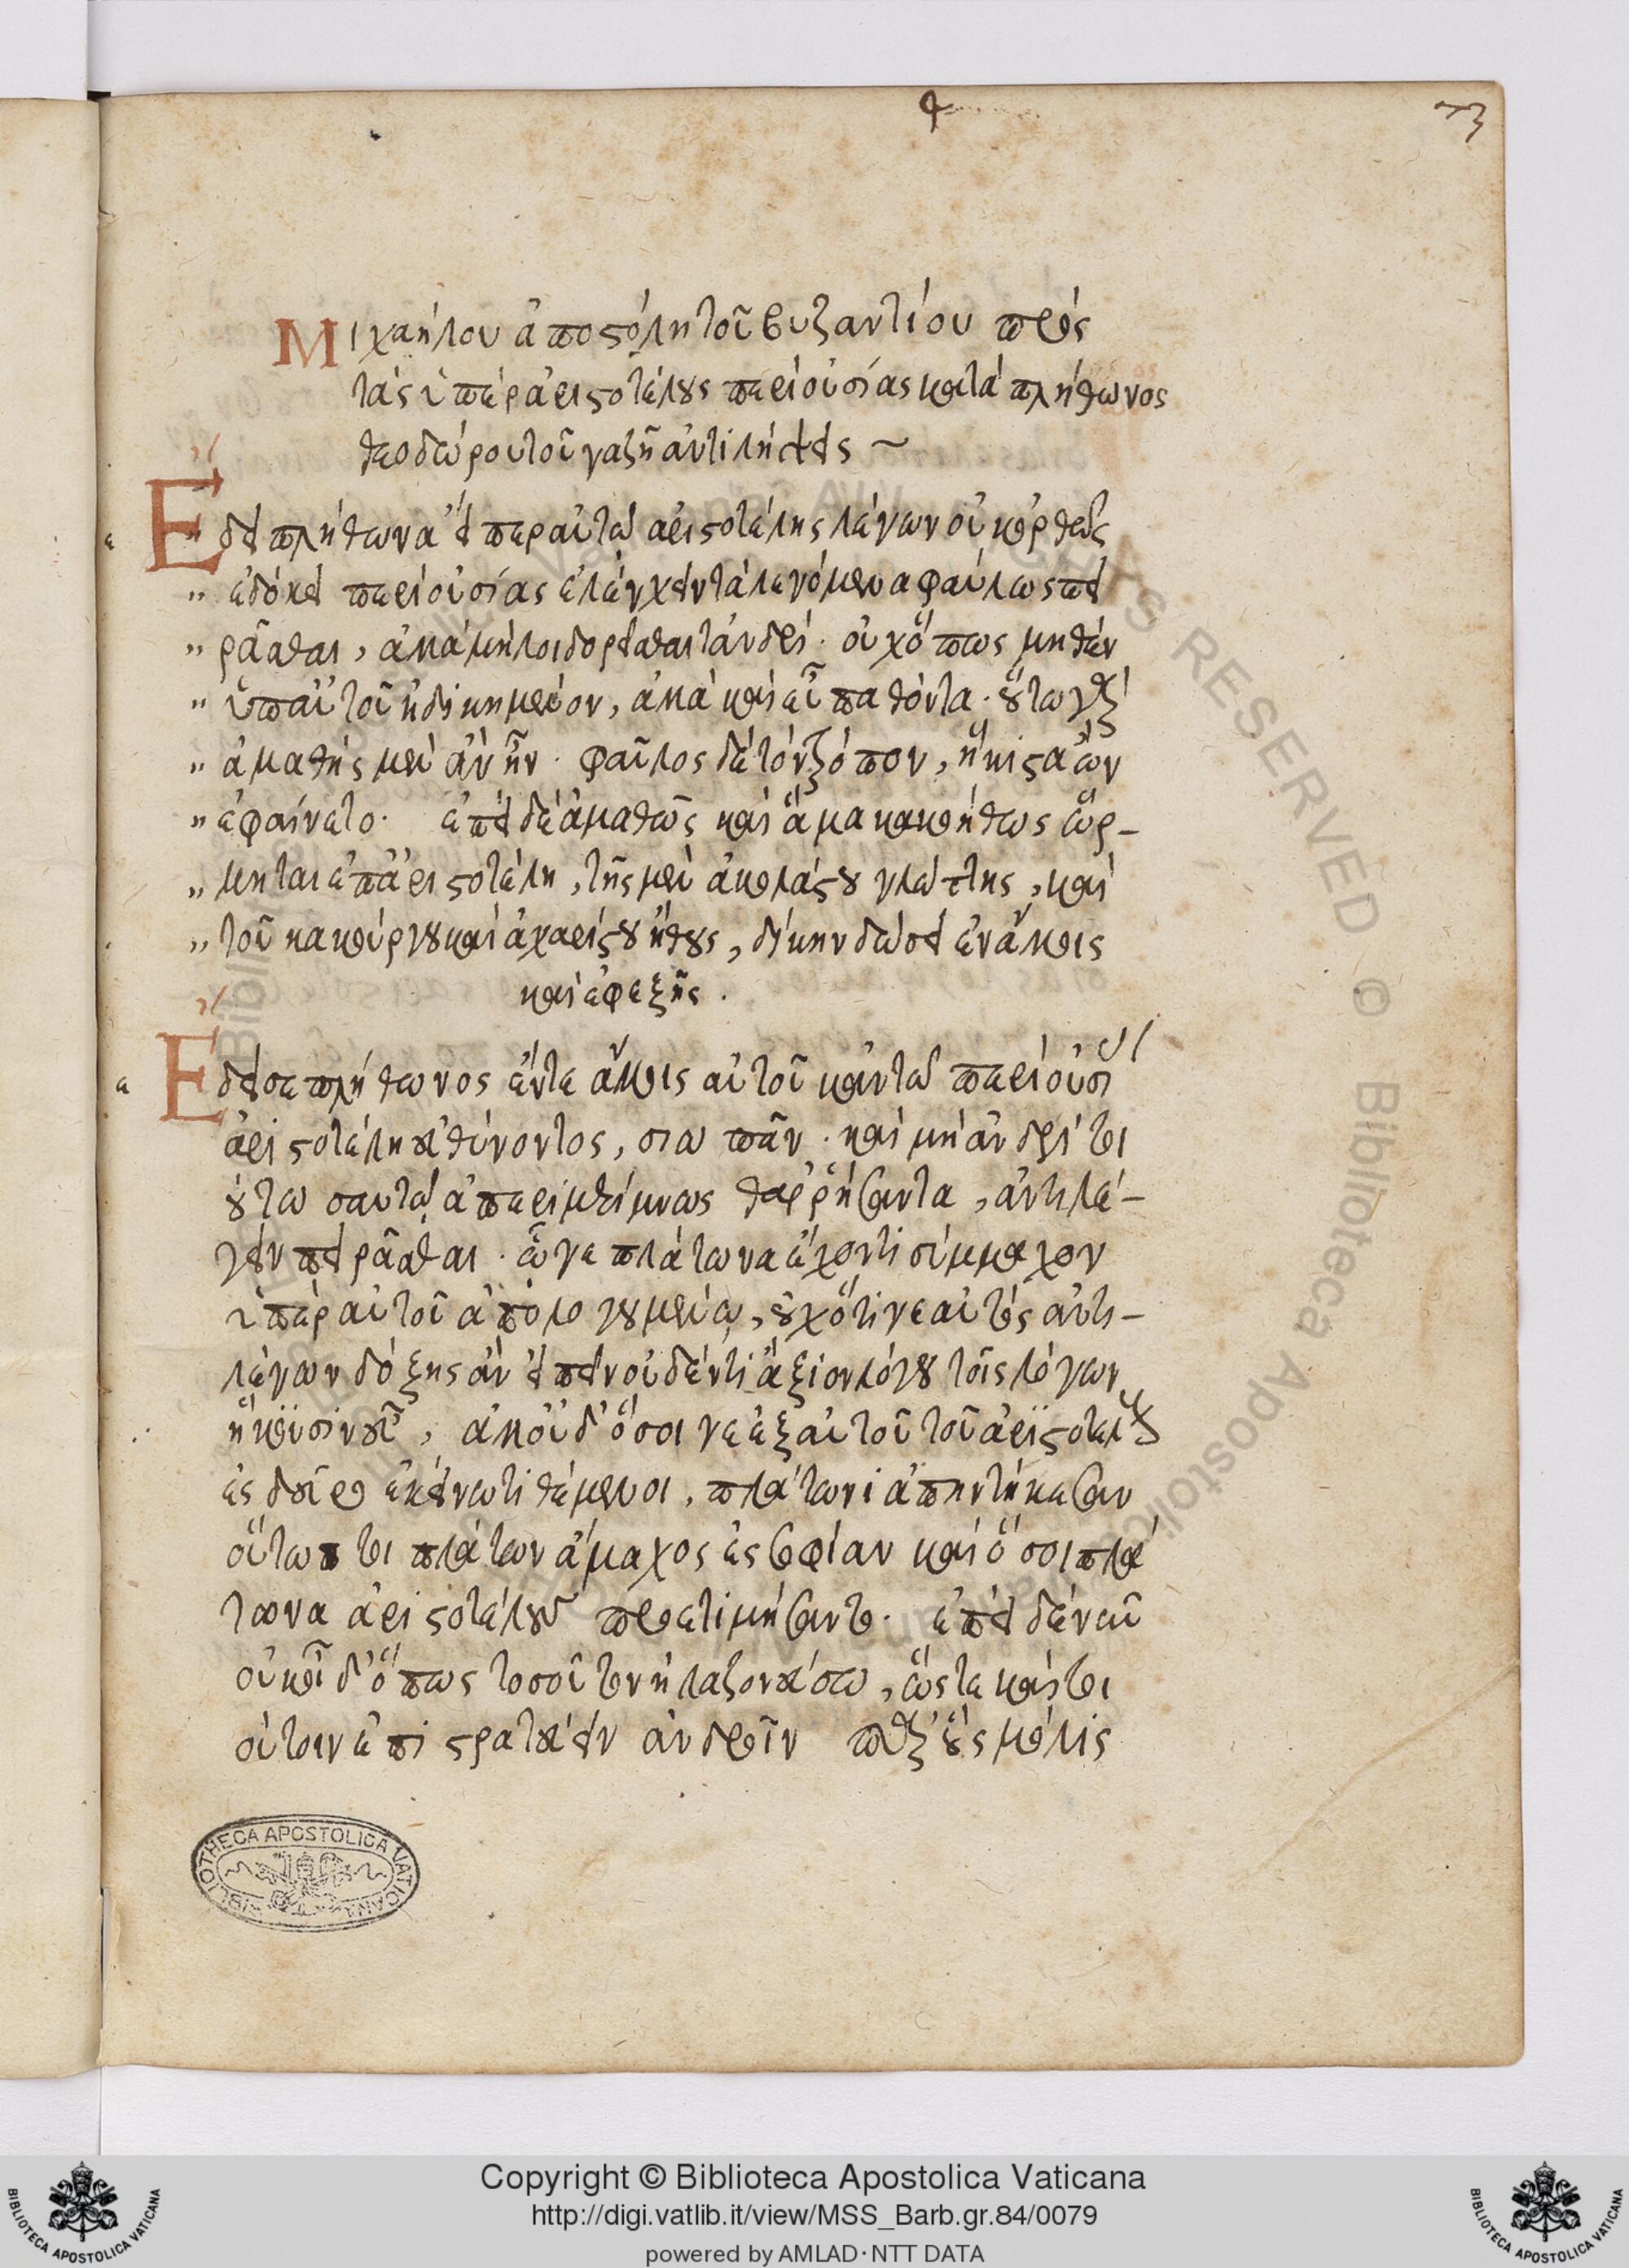 Μιχαήλου ἀποστόλη τοῦ βυζαντίου πρὸς
τὰς ὑπὲρ ἀριστοτέλους περὶ οὐσίας κατὰ πλήθωνος
θεοδώρου τοῦ γαζῆ ἀντιλήψεις ~
Ἔδει πλήθωνα εἴπερ αὐτῷ ἀριστοτέλης λέγων οὐκ ὀρθῶς
" ἐδόκει περὶ οὐσίας ἐλέγχειν τὰ λεγόμενα φαύλως πει
" ρᾶσθαι, ἀλλὰ μὴ λοιδορεῖσθαι τἀνδρί. οὐχ ὅπως μηθὲν
" ὑπ' αὐτοῦ ἠδικημένον, ἀλλὰ καὶ εὖ παθόντα. οὕτω γὰρ
" ἀμαθὴς μὲν ἂν ἦν. φαῦλος δὲ τὸν τρόπον, ἥκιστα ὢν
" ἐφαίνετο. ἐπεὶ δὲ ἀμαθῶς καὶ ἅμα κακοήθως ὥρ-
" μηται ἐπ' ἀριστοτέλη, τῆς μὲν ἀκολάστου γλώττης, καὶ
" τοῦ κακούργου καὶ ἀχαρίστου ἤθους, δίκην δώσει ἐν ἄλλοις
καὶ ἐφεξῆς.
Ἔδει σε πλήθωνος ἔν τε ἄλλοις αὐτοῦ κἀν τῷ περὶ οὐσί
ἀριστοτέλη εὐθύνοντος, σιωπᾶν. καὶ μὴ ἀνδρὶ τοι
ούτω σαυτῷ ἀπεριμερίμνως θαρρήσαντα, ἀντιλέ-
γειν πειρᾶσθαι. ᾧγε πλάτωνα ἔχοντι σύμμαχον
ὑπὲρ αὐτοῦ ἀπολογουμένῳ, οὐχ ὅτι γε αὐτὸς ἀντι-
λέγων δόξης ἂν εἰπεῖν οὐδέν τι ἄξιον λόγου τοῖς λόγων
ἀλλ' οὐδ' ὅσοι γε ἐξ αὐτοῦ τοῦ ἀριστοτέλους
ἐς δεῦρο ἐκείνῳ τιθέμενοι, πλάτωνι ἀπηντήκεσαν
οὕτω τοι πλάτων ἄμαχος ἐς σοφίαν καὶ ὅσοι πλά
τωνα ἀριστοτέλους προετιμήσαντο. ἐπεὶ δέ γε
οὐκ οἶδ' ὅπως τοσοῦτον ἠλαζονεύσω, ὥστε καὶ τοι
ούτοιν ἐπιστρατεύειν ἀνδροῖν παρ' οὓς μόλις